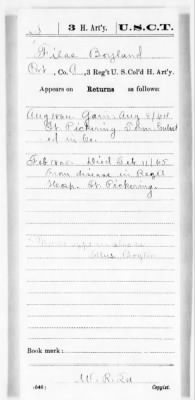 3 H. Art'y. U.S.C.T.
Filas Boyland
Pvt, Co. C, 3 Reg't U. S. Col'd H. Art'y.
Appears on
Returns as follows:
Aug 1864. Gain Aug 8/64
Ft Pickering Tenn. Enlist
ed in Co.
Feb 1865. Died Feb 11/65
From disease in Regtl
Hosp. Ft. Pickering.
Name appears also as
Boylan
Book mark:
(646) Copyist.